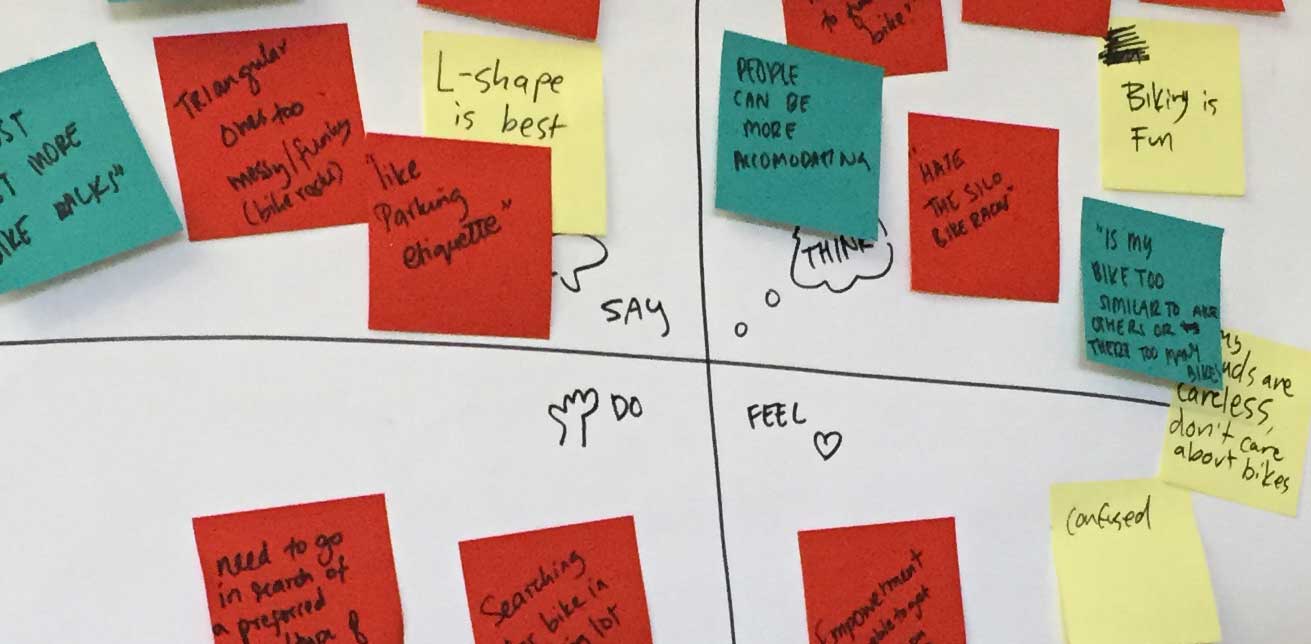 MORE
TRIangular
Ones too
messy/funky
(bike racks)
L-shape
is best
"like
Parking
etiquette"
SAY
bike!"
PEOPLE
CAN BE
MORE
ACCOMODATING
THINK
"HATE
THE SILO
BIKE RACK"
Biking is
Fun
"IS MY
BIKE TOO
SIMILAR TO
OTHERS OR
THERE TOO MANY
BIKES
are
careless,
don't care
about bikes
DO
FEEL
need to go
in search of
a preferred
Searching
bike in
lot
Empowerment
confused